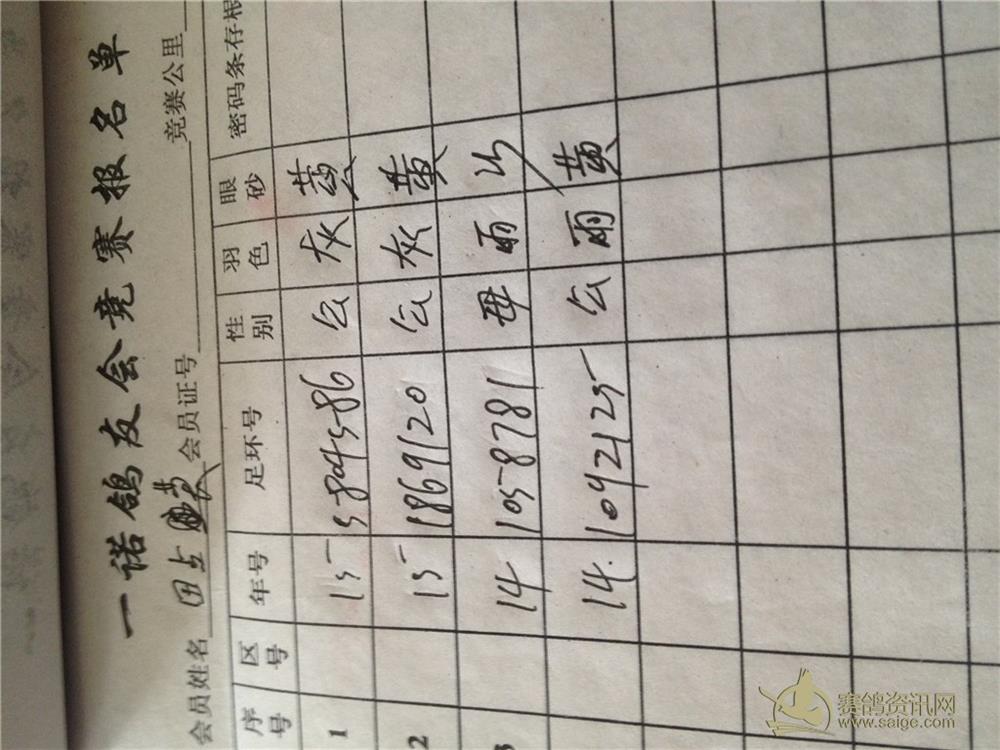 一诺鸽友会竞赛报名单
会员姓名 田占 会员证号 竞赛公里
序号 区号 年号 足环号 性别 羽色 眼砂 密码条存根
1 15 5804586 公 灰 黄
2 15 1869120 公 灰 黄
3 14 1058781 母 雨 沙
14. 1092125 公 雨 黄
赛鸽资讯网
www.saige.com